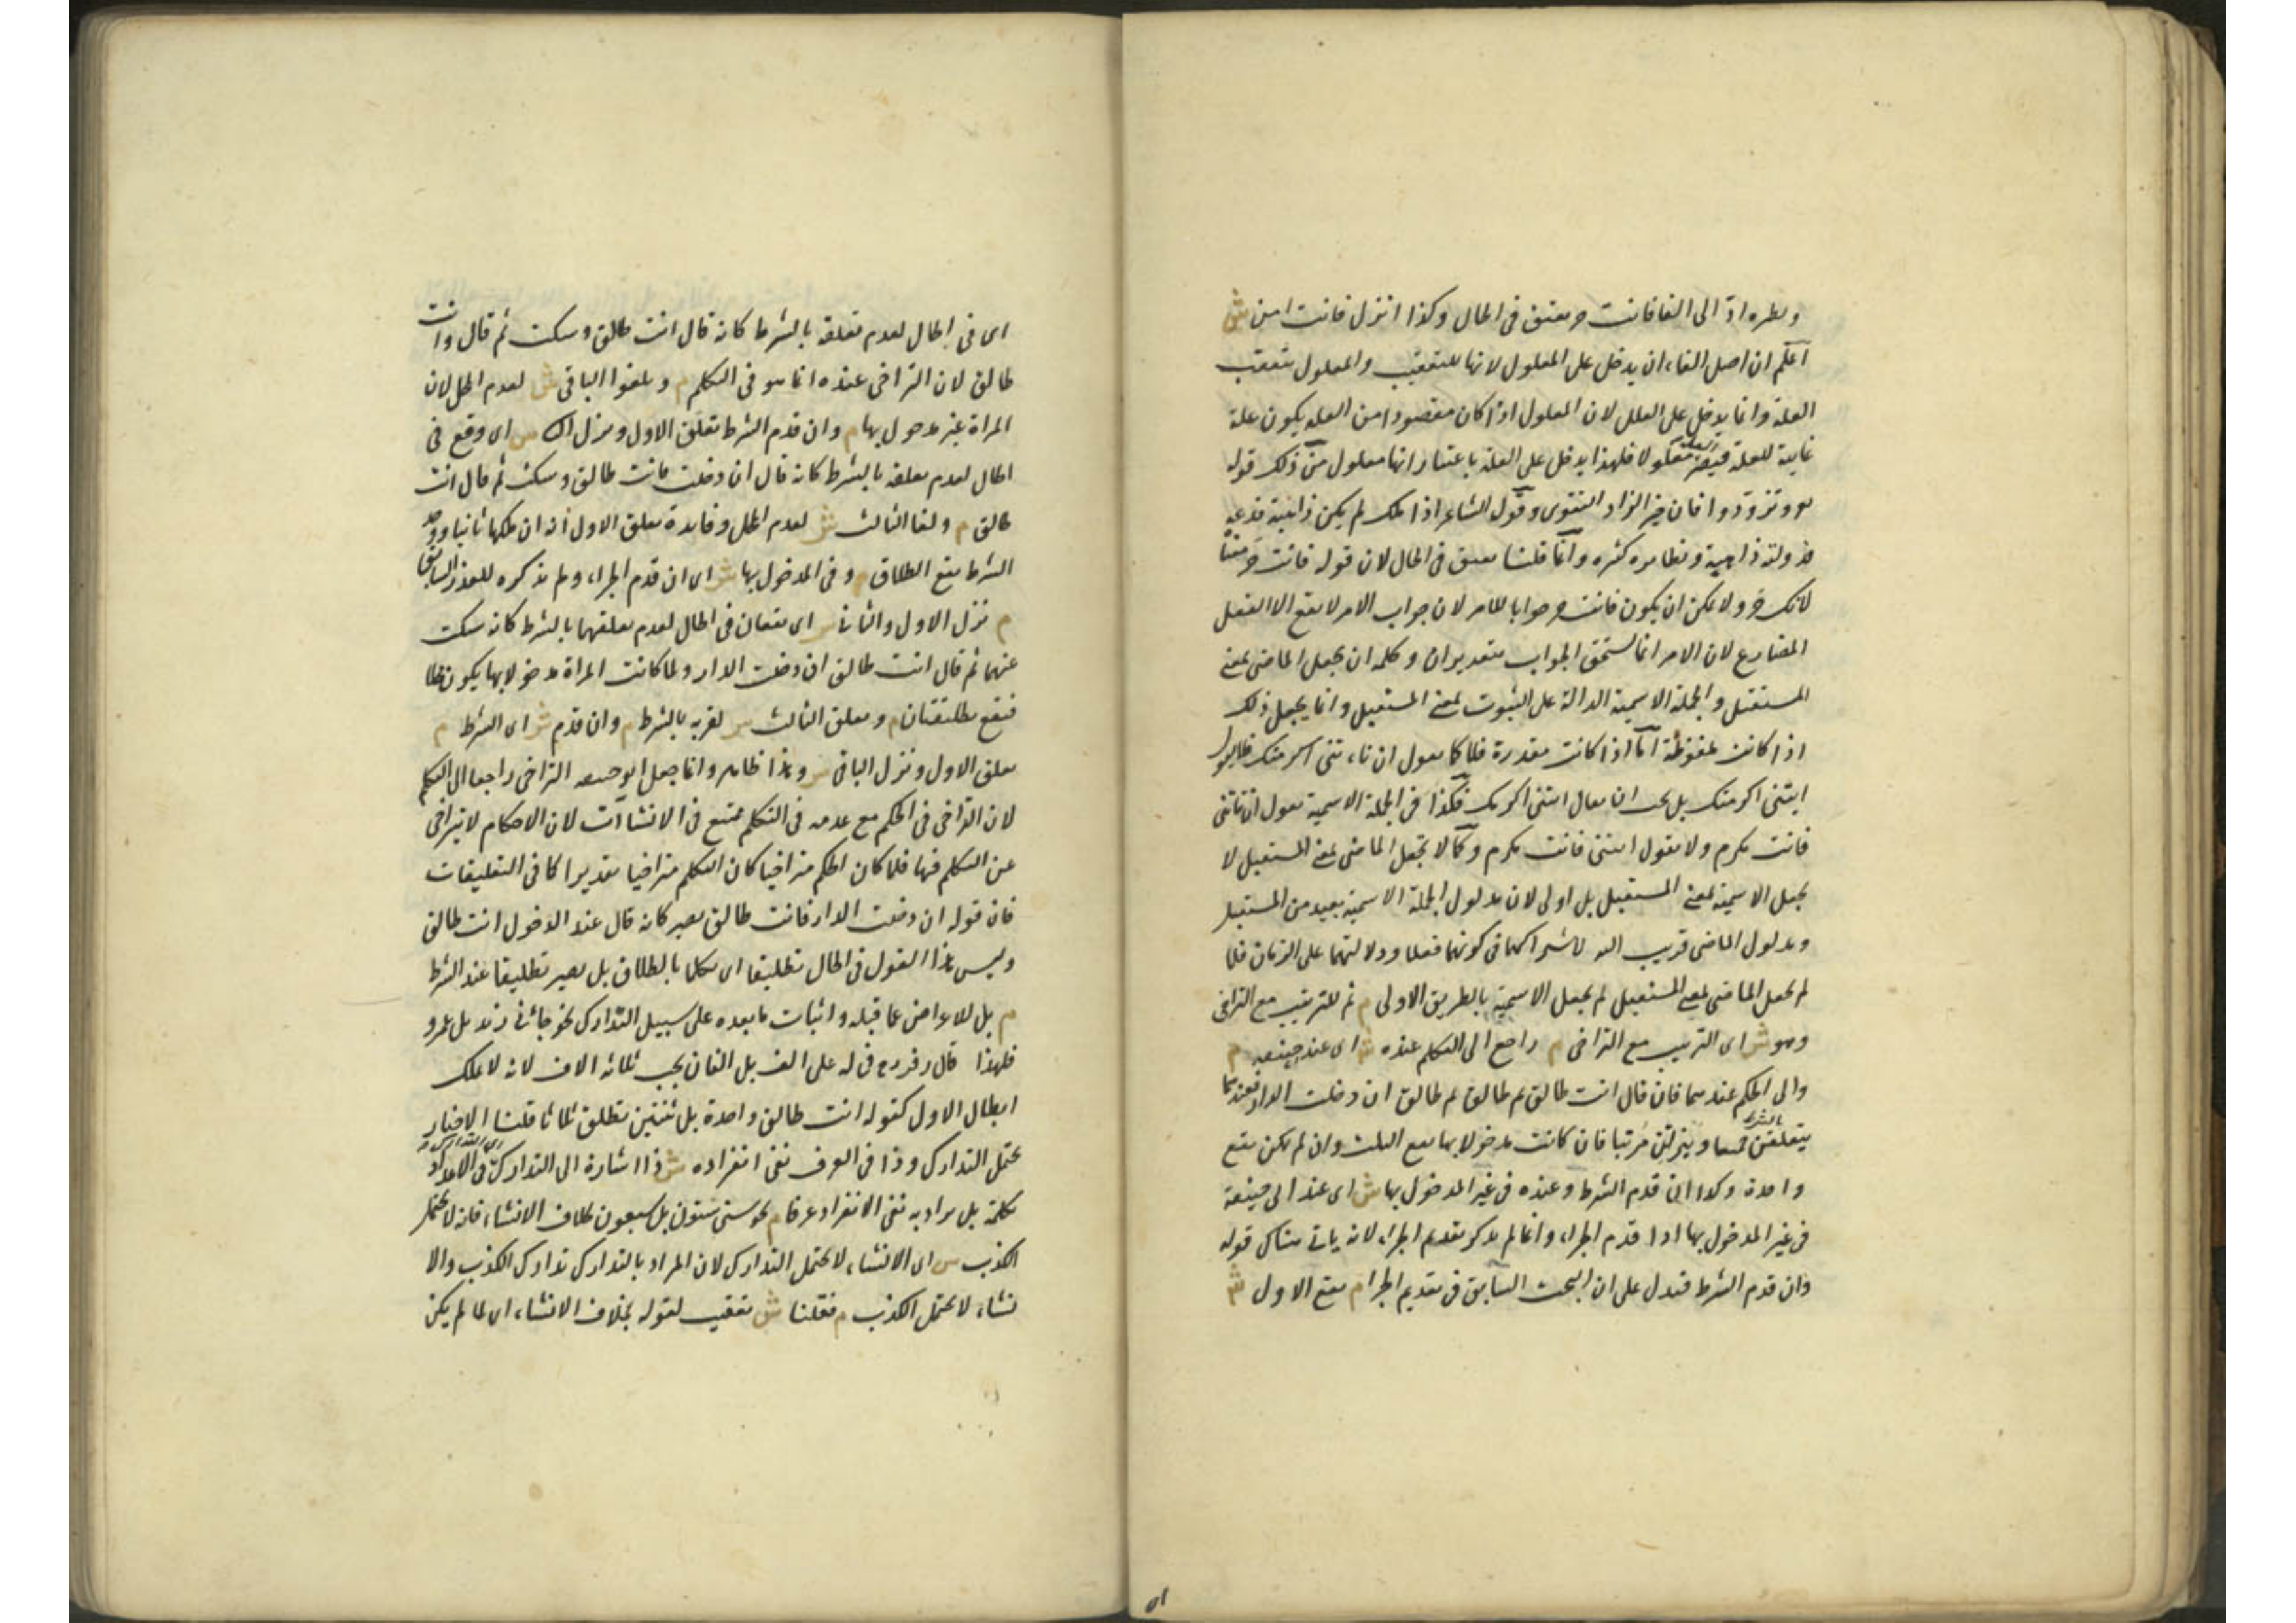 ونظيره ادّ الى الفا فانت حر يعتق فى الحال وكذا انزل فانت امن ش
اعلم ان اصل الفاء ان يدخل على المعلول لانها للتعقيب والمعلول يتعقب
العلة وانما يدخل على العلل لان المعلول اذا كان مقصودا من العلة يكون علة
غائية للعلة فيصير العلة معلولا فلهذا يدخل على العلة باعتبار انها معلول من ذلك قوله
تعـ وتزوّدوا فان خير الزاد التقوى وقول الشاعر اذا ملك لم يكن ذا هبة فدعه
فدولته ذاهبة ونظائره كثيره وانما قلنا يعتق فى الحال لان قوله فانت حر معناه
لانك حر ولا يمكن ان يكون فانت حر جوابا للامر لان جواب الامر لا يقع الا الفعل
المضارع لان الامر انما يستحق الجواب بتقدير ان وكلمة ان يجعل الماضى بمعنى
المستقبل والجملة الاسمية الدالة على الثبوت بمعنى المستقبل وانما يجعل ذلك
اذا كانت ملفوظة امّا اذا كانت مقدرة فلا كما يقول ان تاتنى اكرمتك فلا يقول
ايتنى اكرمتك بل يجب ان يقال ايتنى اكرمك فكذا فى الجملة الاسمية يقول ان تاتنى
فانت مكرم ولا يقول ايتنى فانت مكرم وكما لا تجعل الماضى بمعنى المستقبل لا
يجعل الاسمية بمعنى المستقبل بل اولى لان مدلول الجملة الاسمية بعيد من المستقبل
ومدلول الماضى قريب اليه لاشتراكهما فى كونهما فعلا ودلالتهما على الزمان فلما
لم يجعل الماضى بمعنى المستقبل لم يجعل الاسمية بالطريق الاولى م ثم للترتيب مع التراخى
وهو ش اى الترتيب مع التراخى م راجع الى التكلم عنده ش اى عند ابى حنيفه م
والى الحكم عندهما فان قال انت طالق ثم طالق ثم طالق ان دخلت الدار فعندهما
يتعلقن جميعا بالشرط وينزلن مرتبا فان كانت مدخولا بها يقع الثلث وان لم يكن يقع
واحدة وكذا ان قدم الشرط وعنده فى غير المدخول بها ش اى عند ابى حنيفة
فى غير المدخول بها اذا قدم الجزاء وانما لم يذكر تقديم الجزاء لانه ياتى هناك قوله
وان قدم الشرط فيدل على ان البحث السابق فى تقديم الجزا م يقع الاول ش
اى فى الحال لعدم تعلقه بالشرط كانه قال انت طالق وسكت ثم قال وانت
طالق لان التراخى عنده انما هو فى التكلم م ويلغوا الباقى ش لعدم المحل لان
المراة غير مدخول بها م وان قدم الشرط تعلق الاول ونزل الثا ش اى وقع فى
الحال لعدم تعلقه بالشرط كانه قال ان دخلت فانت طالق وسكت ثم قال انت
طالق م ولغا الثالث ش لعدم المحل وفايدة تعلق الاول انه ان ملكها ثانيا ووجد
الشرط يقع الطلاق م وفى المدخول بها ش اى ان قدم الجزاء ولم يذكره للعذر السابق
م نزل الاول والثانى ش اى يقعان فى الحال لعدم تعلقهما بالشرط كانه سكت
عنهما ثم قال انت طالق ان دخلت الدار ولما كانت المراة مدخولا بها يكون محلا
فيقع تطليقتان م وتعلق الثالث ش لقربه بالشرط م وان قدم ش اى الشرط م
تعلق الاول ونزل الباقى ش وهذا ظاهر وانما جعل ابو حنيفه التراخى راجعا الى التكلم
لان التراخى فى الحكم مع عدمه فى التكلم ممتنع فى الانشاآت لان الاحكام لا يتراخى
عن التكلم فيها فلما كان الحكم متراخيا كان التكلم متراخيا تقديرا كما فى التعليقات
فان قوله ان دخلت الدار فانت طالق يصير كانه قال عند الدخول انت طالق
وليس هذا القول فى الحال تطليقا اى تكلما بالطلاق بل يصير تطليقا عند الشرط
م بل للاعراض عما قبله واثبات ما بعده على سبيل التدارك نحو جائنى زيد بل عمرو
فلهذا قال زفر رح فى له على الف بل الفان يجب ثلثة الاف لانه لا يملك
ابطال الاول كقوله انت طالق واحدة بل ثنتين تطلق ثلاثا قلنا الاخبار
يحتمل التدارك وذا فى العرف نفى انفراده ش ذا اشارة الى التدارك اى التدارك فى الاعداد
بكلمة بل يراد به نفى الانفراد عرفا م نحو سنى ستون بل سبعون بخلاف الانشاء فانه لا يحتمل
الكذب ش اى الانشاء لا يحتمل التدارك لان المراد بالتدارك تدارك الكذب والا
نشاء لا يحتمل الكذب م فقلنا ش تعقيب لقوله بخلاف الانشاء اى لما لم يكن